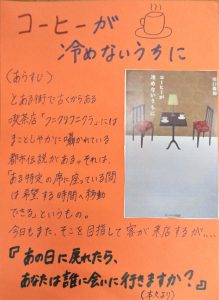 コーヒーが
冷めないうちに
(あらすじ)
とある街で古くからある
喫茶店「フニクリフニクラ」には
まことしやかに囁かれている
都市伝説がある。それは、
「ある特定の席に座っている間
は希望する時間へ移動
できる」というもの。
今日もまた、そこを目指して客が来店するが‥‥
『あの日に戻れたら、
あなたは誰に会いに行きますか?』
(本文より)
コーヒーが
冷めないうちに
川口俊和